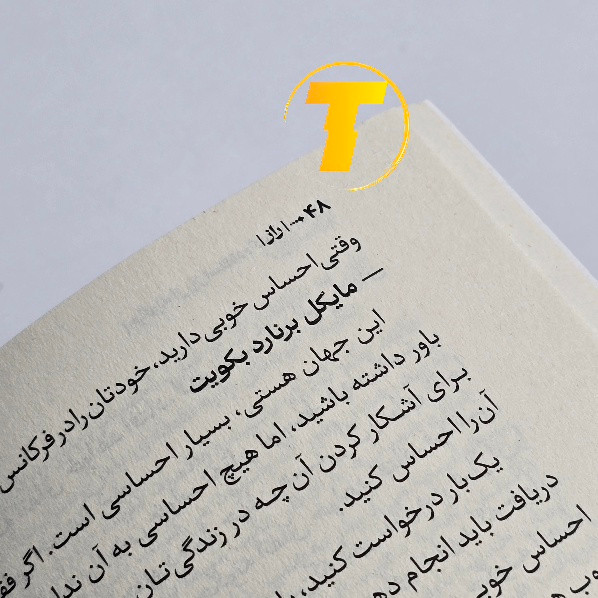 T
۴۸ ← راز
وقتی احساس خوبی دارید، خودتان را در فرکانس
— مایکل برنارد بکویت
این جهان هستی، بسیار احساسی است. اگر
باور داشته باشید، اما هیچ احساسی به آن
برای آشکار کردن آن چه در زندگی‌تان
آن را احساس کنید.
یک‌بار درخواست کنید،
دریافت باید انجام
احساس خوبی